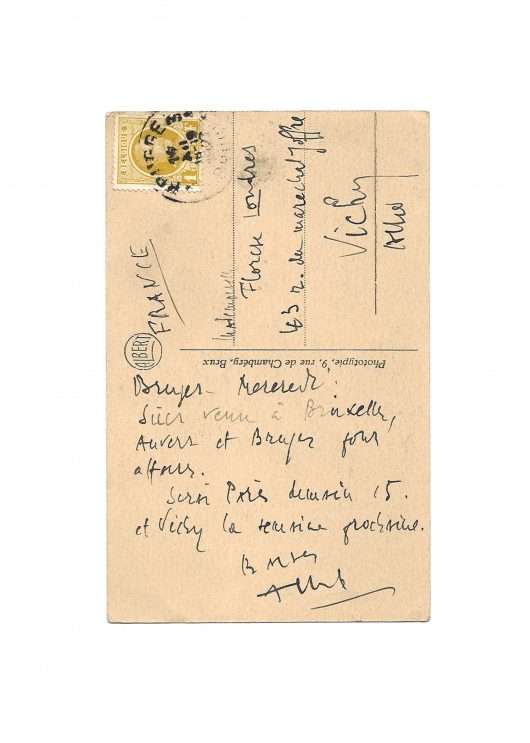 BRUGGE 3
1F
FRANCE
Mademoiselle
Florise Londres
43 r. du maréchal Joffre
Vichy
Allier
ALBERT
Phototypie, 9, rue de Chambéry, Brux
Bruges - Mercredi.
Suis venu à Bruxelles,
Anvers et Bruges pour
affaires.
Serai Paris demain 15.
et Vichy la semaine prochaine.
Baisers
Albert